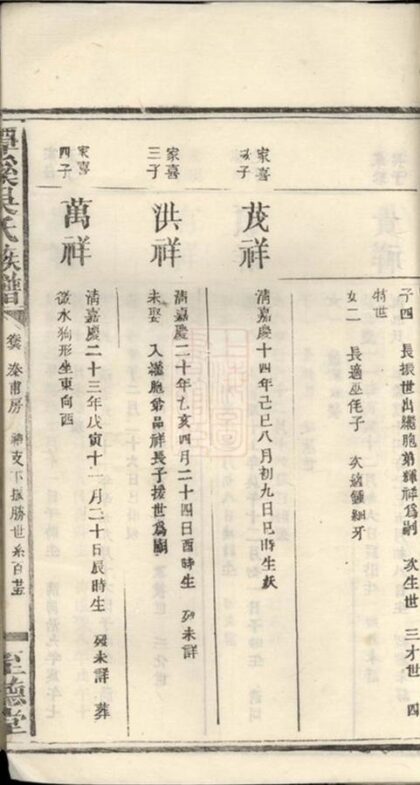 子四 長振世出繼胞弟輝祥爲嗣 次生世 三才世 四
特世
女二 長適巫 子 次適鍾細牙
家喜
次子
茂祥
清嘉慶十四年己巳八月初九日巳時生殀
家喜
三子
洪祥
清嘉慶二十年乙亥四月二十四日酉時生 歿未詳
未娶 入繼胞爺品祥長子援世爲嗣
家喜
四子
萬祥
清嘉慶二十三年戊寅十一月二十日辰時生 歿未詳 葬
水狗形坐東向西
吳氏族譜
泰甫房
支下振勝世系百
至德堂